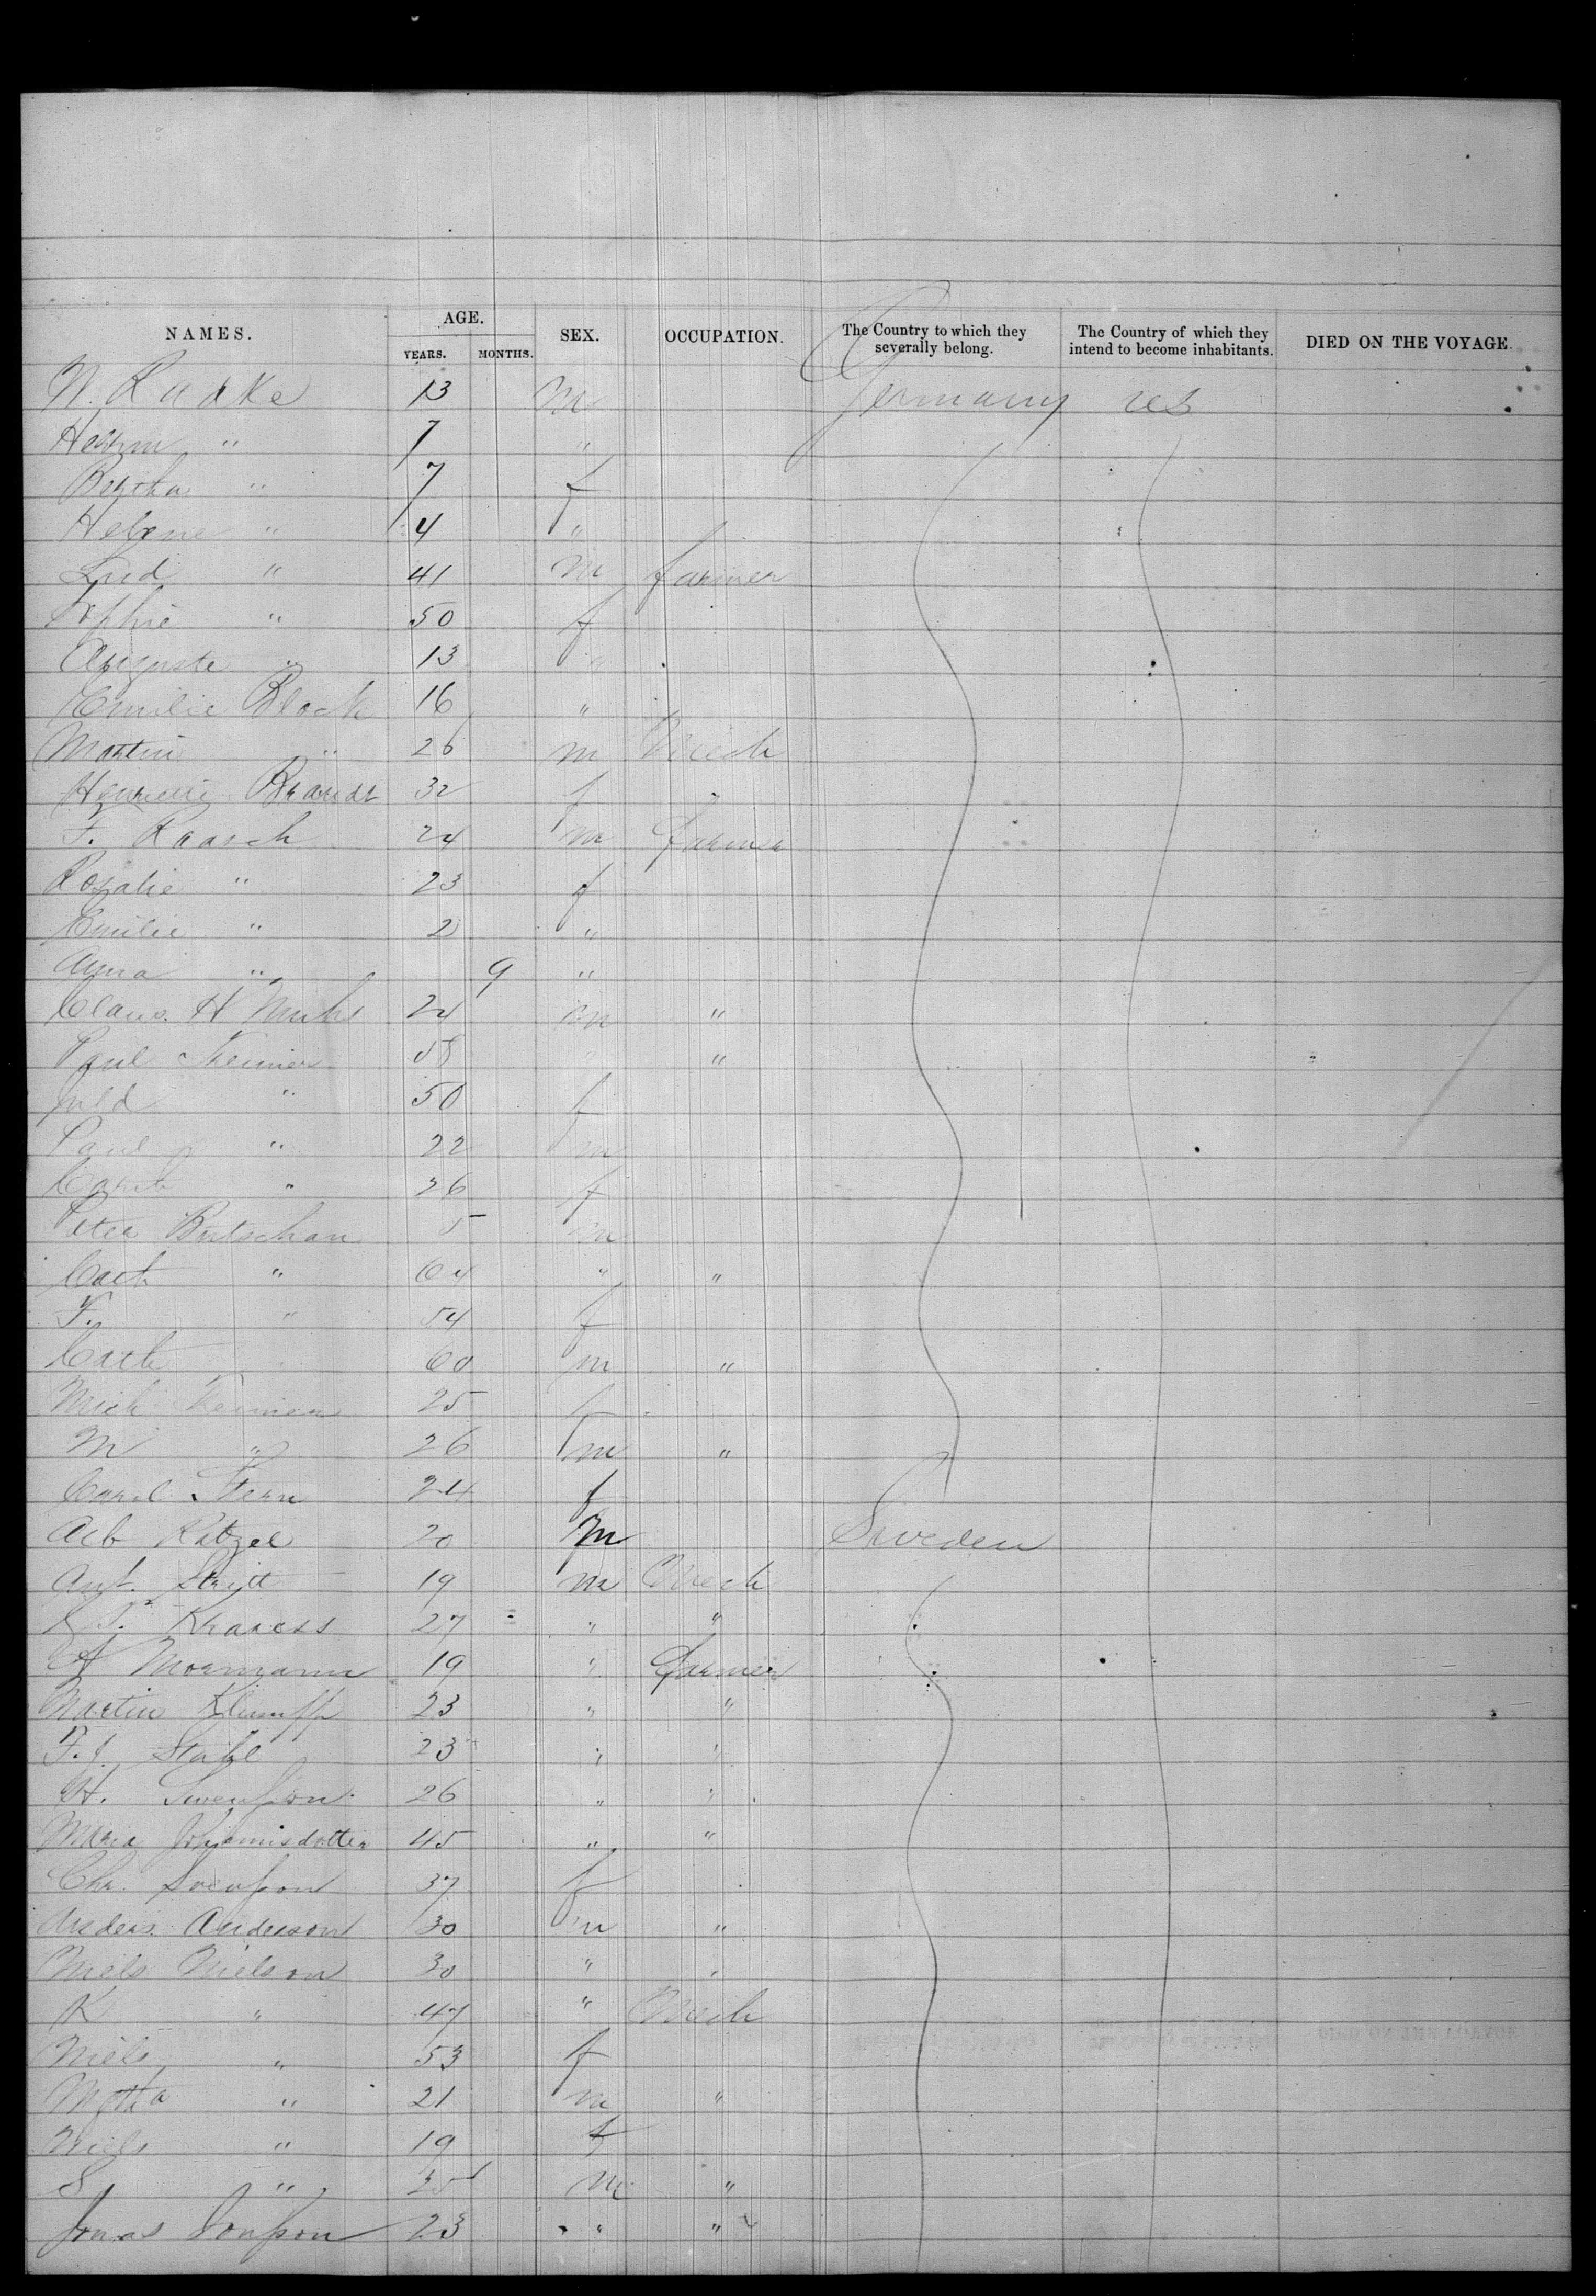 NAMES. AGE. SEX. OCCUPATION. The Country to which they severally belong. The Country of which they intend to become inhabitants. DIED ON THE VOYAGE.
YEARS. MONTHS.
N. Radke 13 m Germany US
Herrm " 7 "
Bertha " 7 f
Helene " 4 "
Lud " 41 m farmer
Sophie " 50 f
Auguste " 13 "
Emilie Block 16 "
Martin " 26 m Mech
Henriette Brandt 32 f
F. Raasch 24 m farmer
Rosalie " 23 f
Emilie " 2 "
Anna " 9 "
Claus. H Muhs 24 m "
Paul "
" 50 f
Paul " 22 m
" 26 f
Peter Butschau 5 m
Cath " 64 " "
F. " 54 f
Cath 60 m "
Mich 25 f
M " 26 m "
Carol Stern 24 f
Ratzel 20 m Sweden
Ant. 19 m Mech
Krauss 27 " "
19 " farmer
Martin Klumpp 23 " "
F. J. Stahl 23 " "
H. Swenson 26 " "
Maria Johannisdotter 45 " "
Chr. Svenson 37 f
Anders Anderson 30 m "
Niels Nielson 30 " "
K " 47 " Mech
Niels " 53 f
" 21 m "
Niels " 19 f
S " 25 m "
Jonas Jonsson 23 " "